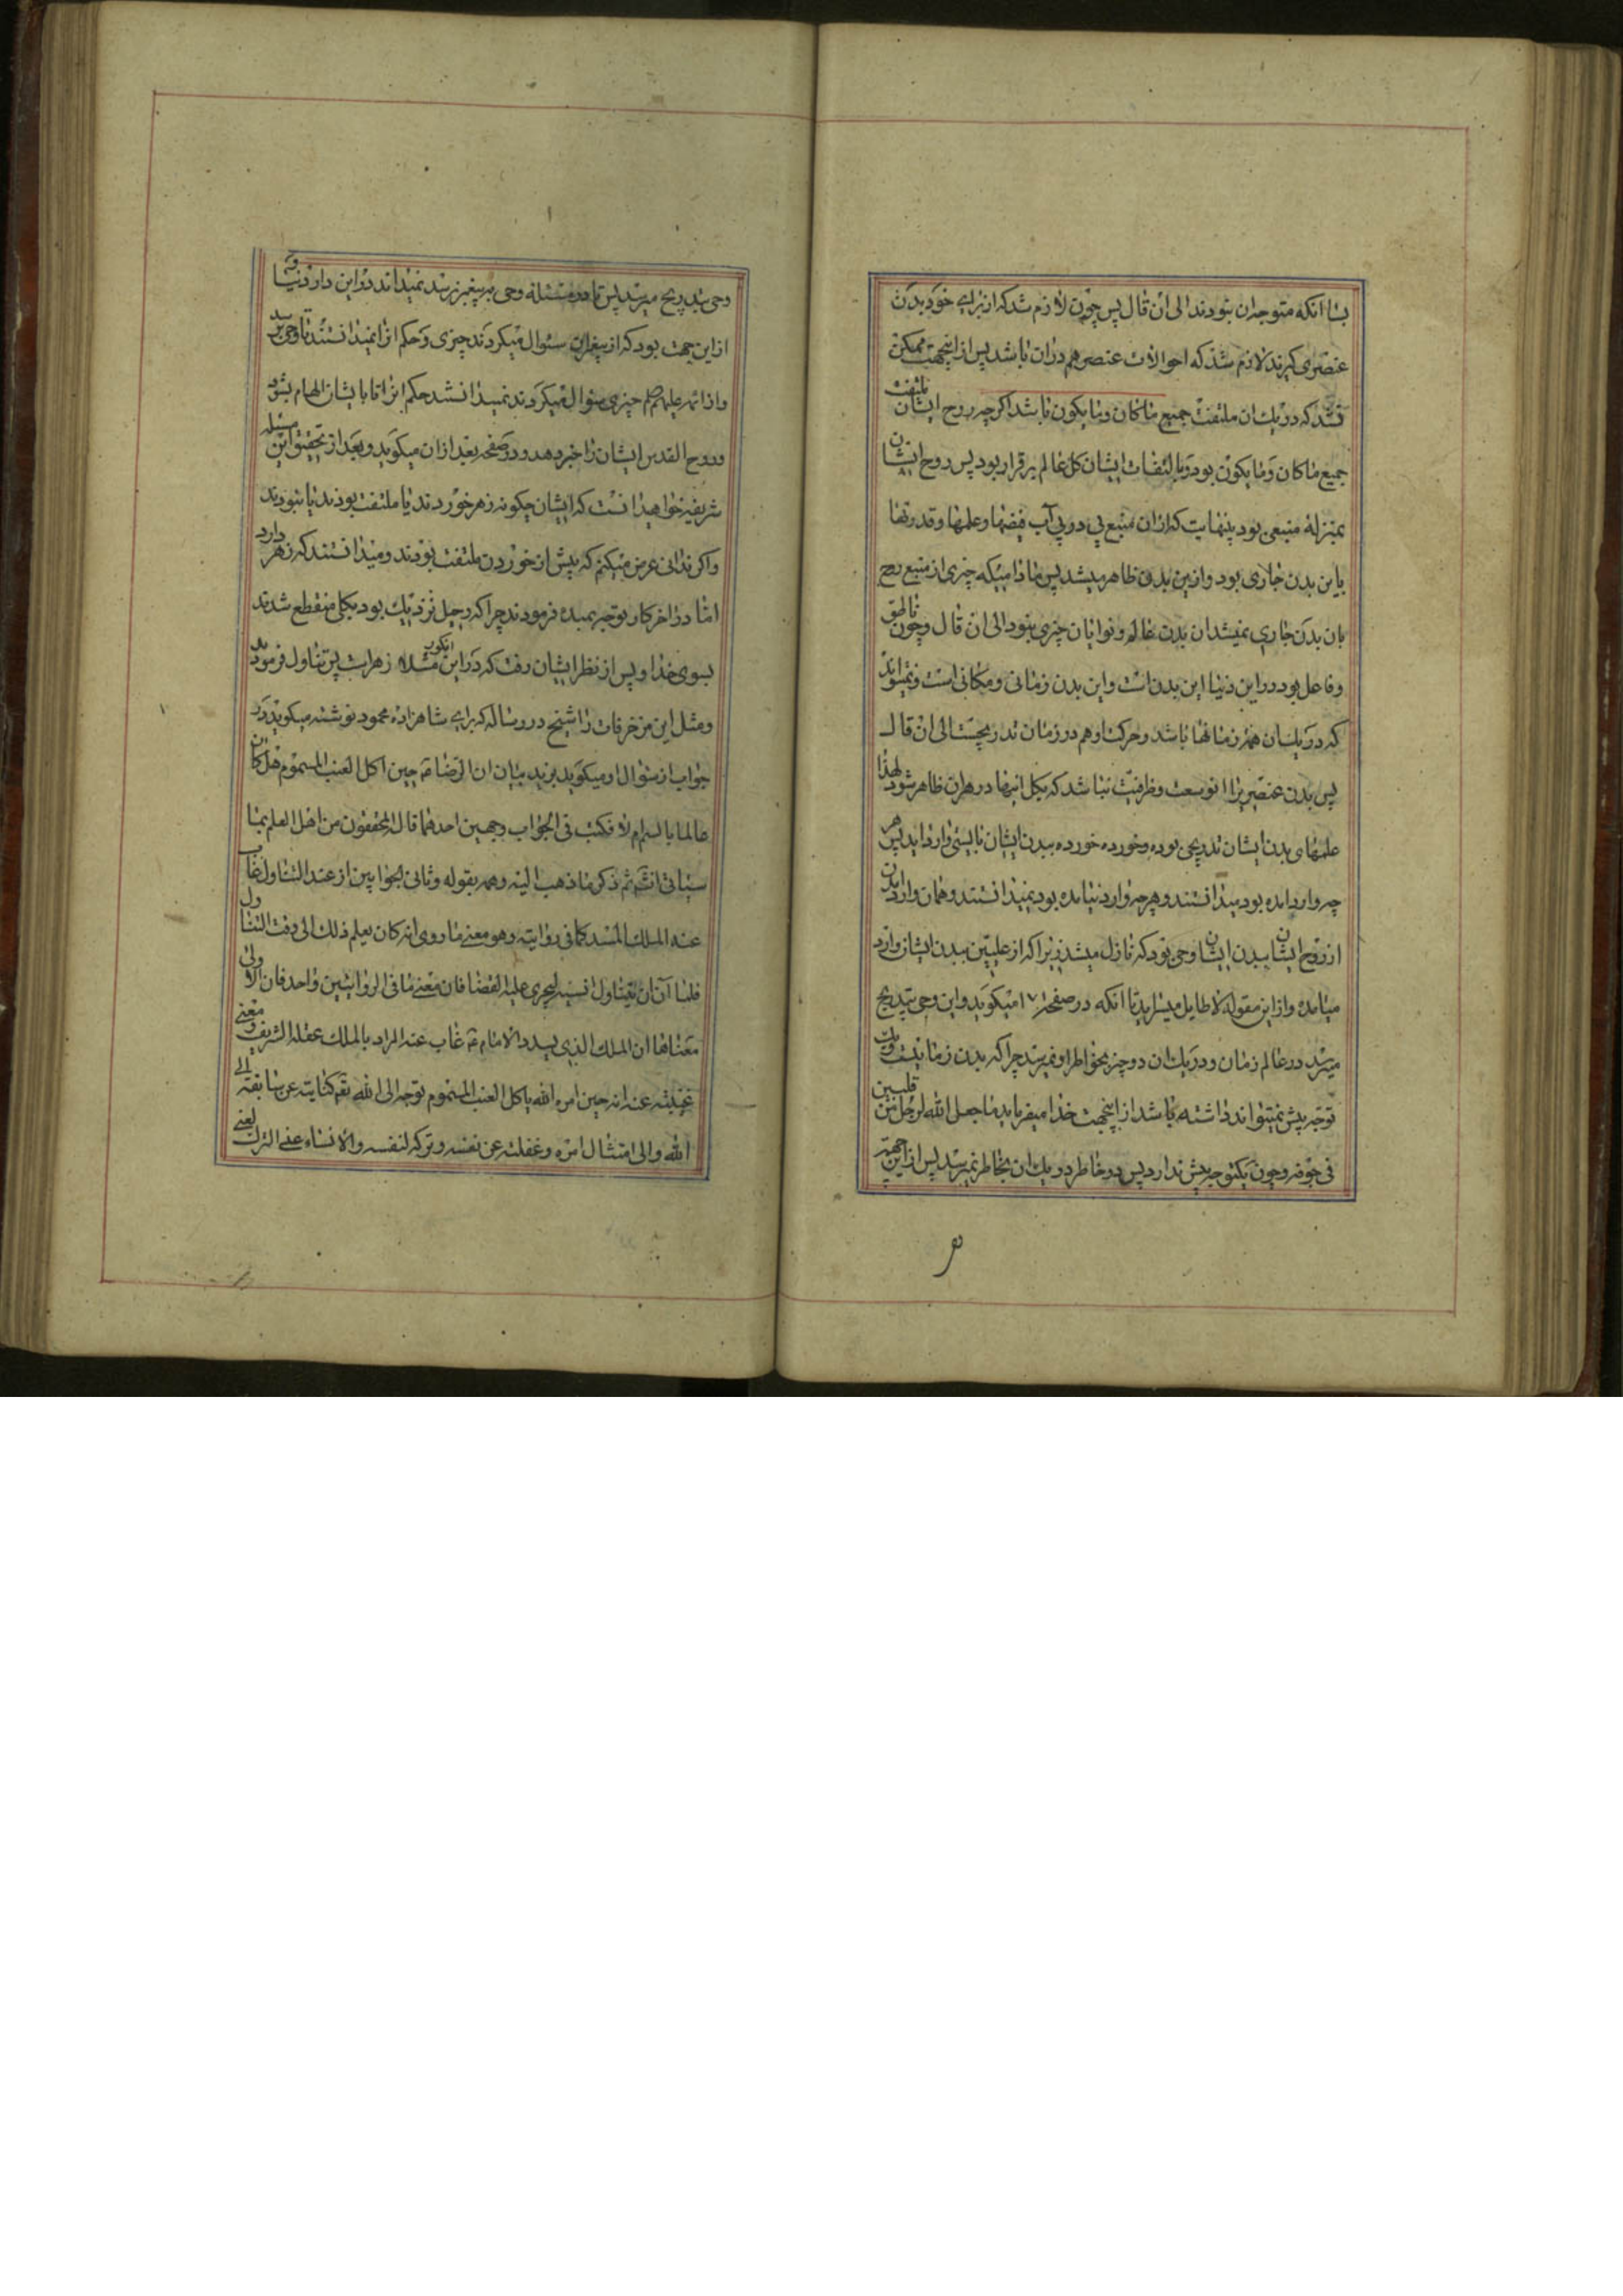 بسا انکه متوجه ان نبودند الی ان قال پس چون لازم شد که از برای خود بدن
عنصری گیرند لازم شد که احوالات عنصر هم در ان باشد پس از اینجهت ممکن
نشد که در یک ان ملتفت جمیع ماکان و ما یکون باشد اگر چه روح ایشان ملتفت
جمیع ماکان و ما یکون بود و بالتفات ایشان کل عالم برقرار بود پس روح ایشان
بمنزله منبعی بود بینهایت که از ان منبع پی در پی آب فیضها و علمها و قدرتها
باین بدن جاری بود و ازین بدن ظاهر میشد پس مادامیکه چیزی از منبع روح
بان بدن جاری نمیشد ان بدن عالم و توانا بان چیزی نبود الی ان قال و چون ناطق
و فاعل بود در این دنیا این بدن است و این بدن زمانی و مکانی است و نمیتواند
که در یک ان همه زمانها باشد و حرکت او هم در زمان تدریجست الی ان قال
پس بدن عنصری را انوسعت و ظرفیت نباشد که بکل اینها در هر ان ظاهر شود لهذا
علمهای بدن ایشان تدریجی بوده و خورده خورده ببدن ایشان بایستی وارد اید پس هر
چه وارد امده بود میدانستند و هر چه وارد نیامده بود نمیدانستند و همان وارد امدن
از روح ایشان ببدن ایشان وحی بود که نازل میشد زیرا که از علیین ببدن ایشان وارد
میامده و از این مقوله لاطایل میسراید تا انکه در صفحه ۱۷۱ میگوید و این وحی بتدریج
میرسد در عالم زمان و در یک ان دو چیز بخواطر او نمیرسد چرا که بدن زمانیست و یک
توجه بیش نمیتواند داشته باشد از اینجهت خدا میفرماید ما جعل الله لرجل من قلبین
فی جوفه و چون یکتوجه بیش ندارد پس در خاطر در یک ان بخاطر نمیرسد پس از این جهة
وحی بتدریج میرسد پس تا در مسئله وحی بر پیغمبر نرسد نمیداند در این دار دنیا و
از این جهت بود که از پیغمبران سئوال میکردند چیزی و حکم انرا نمیدانستند تا وحی برسد
و از ائمه علیهم چیزی سئوال میکردند نمیدانستند حکم انرا تا بایشان الهام بشود
و روح القدس ایشان را خبر دهد و در صفحه بعد از ان میگوید و بعد از تحقیق این مسئله
شریفه خواهید دانست که ایشان چگونه زهر خوردند یا ملتفت بودند یا نبودند
و اگر ندانی عرض میکنم که پیش از خوردن ملتفت بودند و میدانستند که زهر دارد
اما در اخر کار توجه بمبدء فرمودند چرا که رحیل نزدیک بود بکلی منقطع شدند
بسوی خدا و پس از نظر ایشان رفت که در این انگور مثلا زهر است پس تناول فرمودند
و مثل این مزخرفات را شیخ در رساله که برای شاهزاده محمود نوشته میگوید در
جواب از سئوال او میگوید یرید بیان ان الرضا ع حین اکل العنب المسموم هل کان
عالما بالسم ام لا فکتب فی الجواب وجهین احدهما قال المحققون من اهل العلم بما
سیاتی انشم ثم ذکر ما ذهب الیه وهمه بقوله و ثانی الجوابین ان عند التناول غاب
عنه الملک المسدد کما فی روایته و هو معنی ما روی انه کان یعلم ذلک الی وقت التناول
فلما آن ان یتناول انسیه لیجری علیه القضا فان معنی ما فی الروایتین واحد فان الاولی
معناها ان الملک الذی یسدد الامام ع غاب عنه المراد بالملک عقله الشریف و معنی
غیبته عنه انه حین امره الله باکل العنب المسموم توجه الی الله تع کنایته عن سابقته الی
الله و الی امتثال امره و غفلته عن نفسه و ترکه لنفسه و الانساء عنی الترک یعنی